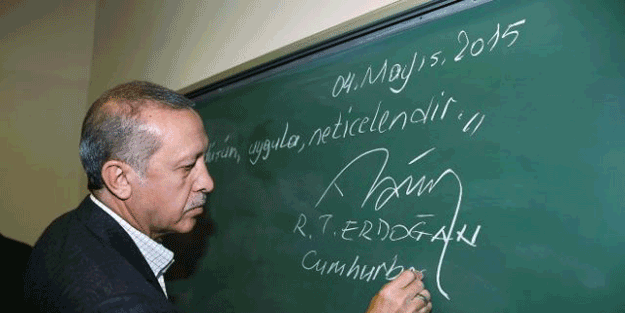 04. Mayıs. 2015
uygula, neticelendir."
R. T. ERDOĞAN
Cumhurba